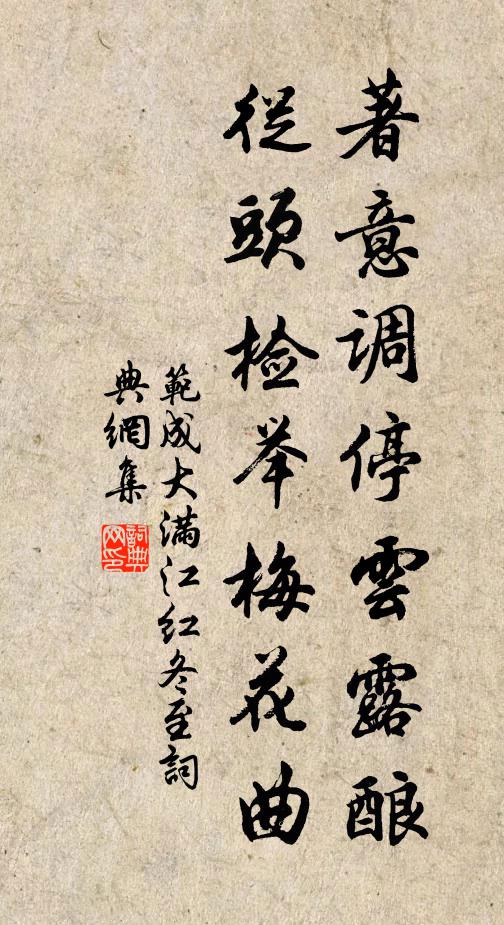 著意調停雲露酿
從頭檢举梅花曲
範成大滿江红冬至詞
典網集
詞典网印